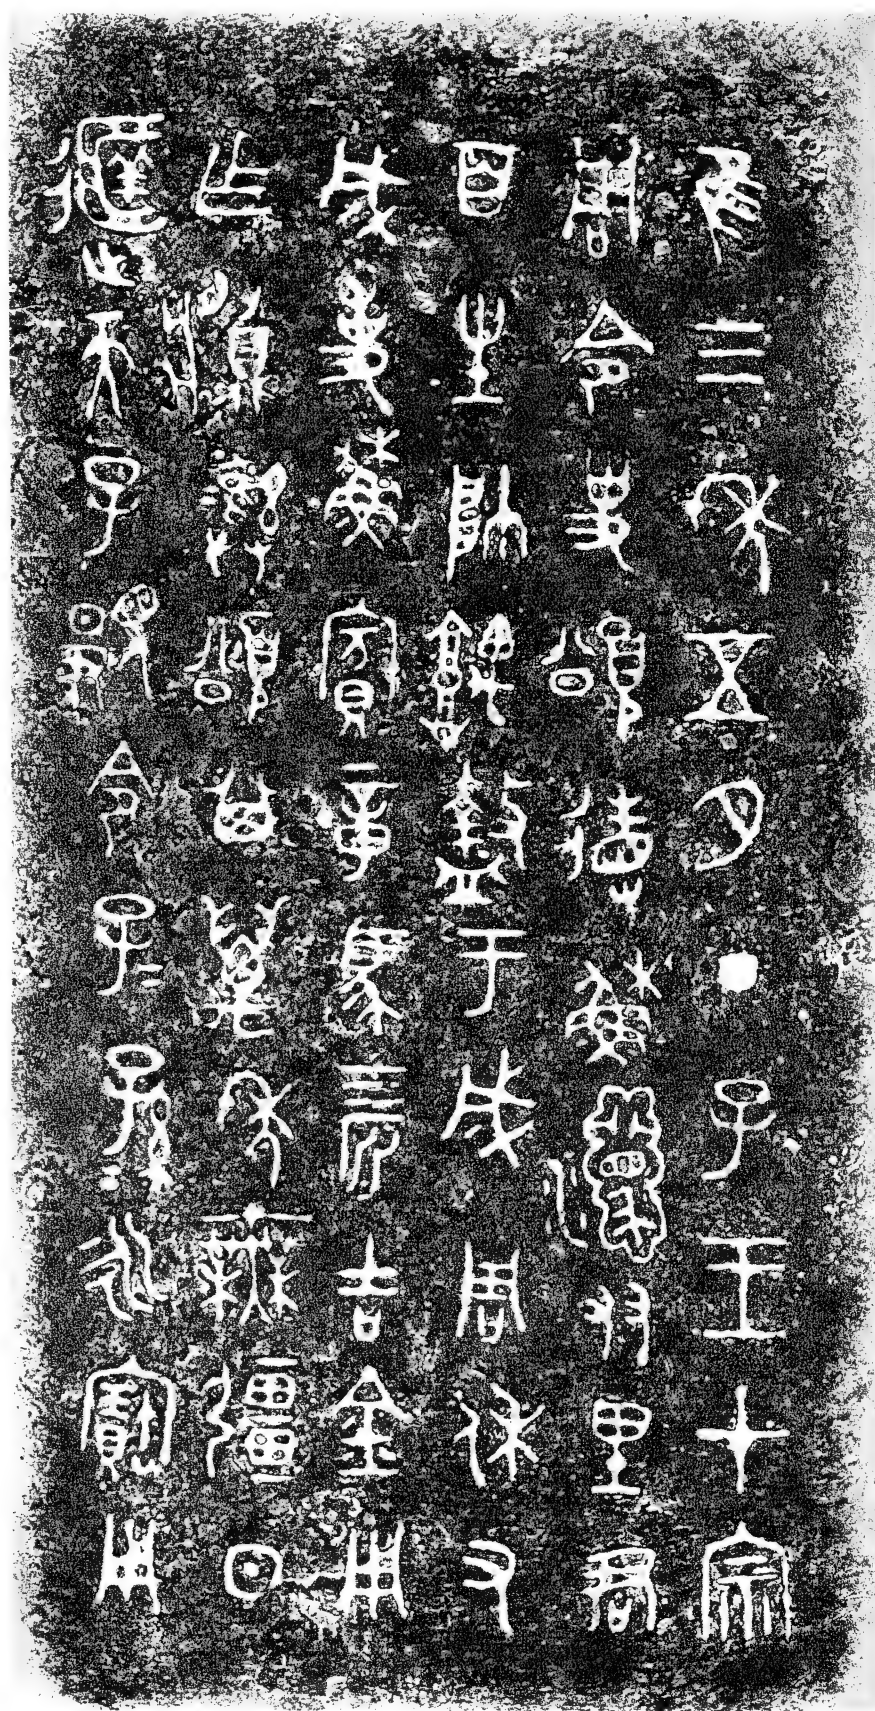 隹三年五月丁子王才宗
周令史頌省穌友里君
百生帥堣盩于成周休又
成事穌賓章馬四匹吉金用
乍䵼彝頌其萬年無彊日
天子令子=孫=永寶用